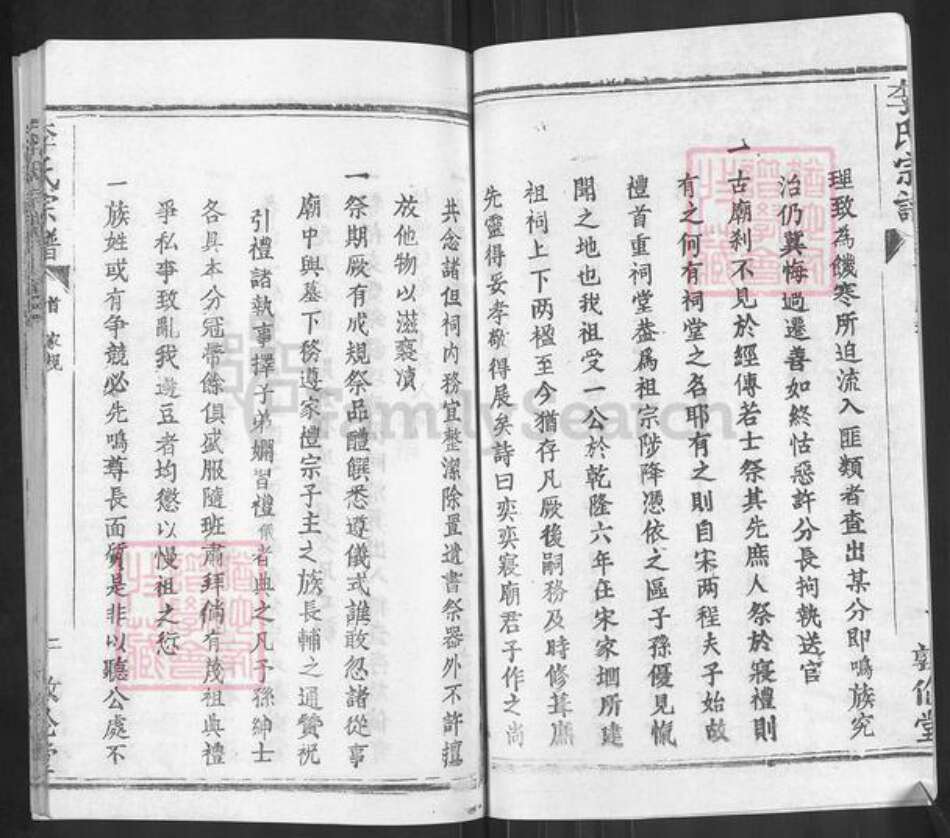 李氏宗譜
理致為饑寒所迫流入匪類者查出某分即鳴族究
治仍冀悔過遷善如終怙惡許分長拘執送官
一古廟刹不見於經傳若士祭其先庶人祭於寢禮則
有之何有祠堂之名耶有之則自宋两程夫子始故
禮首重祠堂葢爲祖宗陟降憑依之區子孫優見愾
聞之地也我祖受一公於乾隆六年在宋家堌所建
祖祠上下两楹至今猶存凡厥後嗣務及時修葺庶
先靈得妥孝敬得展矣詩曰奕奕寢廟君子作之尚
敦倫堂
共念諸但祠内務宜整潔除置遺書祭器外不許擅
放他物以滋褻凟
一祭期厥有成規祭品醴饌悉遵儀式誰敢忽諸從事
廟中與墓下務遵家禮宗子主之族長輔之通贊祝
引禮諸執事擇子弟嫻習禮儀者典之凡子孫紳士
各具本分冠帶餘俱盛服隨班肅拜倘有蔑祖典禮
爭私事致亂我籩豆者均懲以慢祖之愆
一族姓或有争競必先鳴尊長面質是非以聽公處不
李氏宗譜
首 家規
二
敦倫堂
FamilySearch